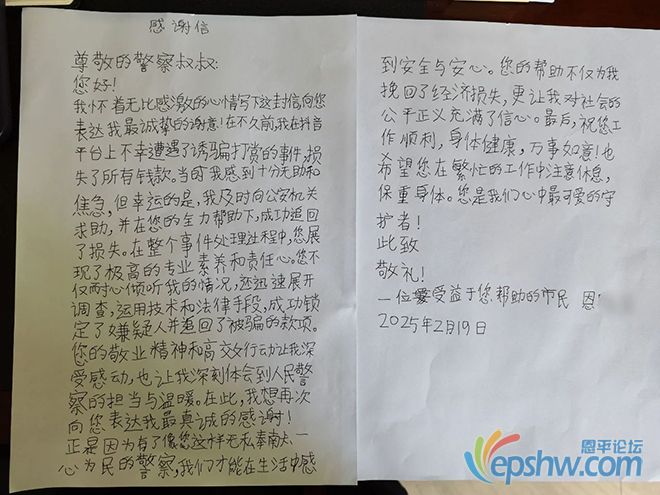 感谢信
尊敬的警察叔叔:
您好!
我怀着无比感激的心情写下这封信向您
表达我最诚挚的谢意!在不久前,我在抖音
平台上不幸遭遇了诱骗打赏的事件,损
失了所有钱款。当时我感到十分无助和
焦急,但幸运的是,我及时向公安机关
求助,并在您的全力帮助下,成功追回
了损失。在整个事件处理过程中,您展
现了极高的专业素养和责任心。您不
仅耐心倾听我的情况,还迅速展开
调查,运用技术和法律手段,成功锁
定了嫌疑人并追回了被骗的款项。
您的敬业精神和高效行动让我深
受感动,也让我深刻体会到人民警
察的担当与温暖。在此,我想再次
向您表达我最真诚的感谢!
正是因为有了像您这样无私奉献、一
心为民的警察,我们才能在生活中感
到安全与安心。您的帮助不仅为我
挽回了经济损失,更让我对社会的
公平正义充满了信心。最后,祝您工
作顺利,身体健康,万事如意!也
希望您在繁忙的工作中注意休息,
保重身体。您是我们心中最可爱的守
护者!
此致
敬礼!
一位受益于您帮助的市民 恩
2025年2月19日
恩平论坛
epshw.com